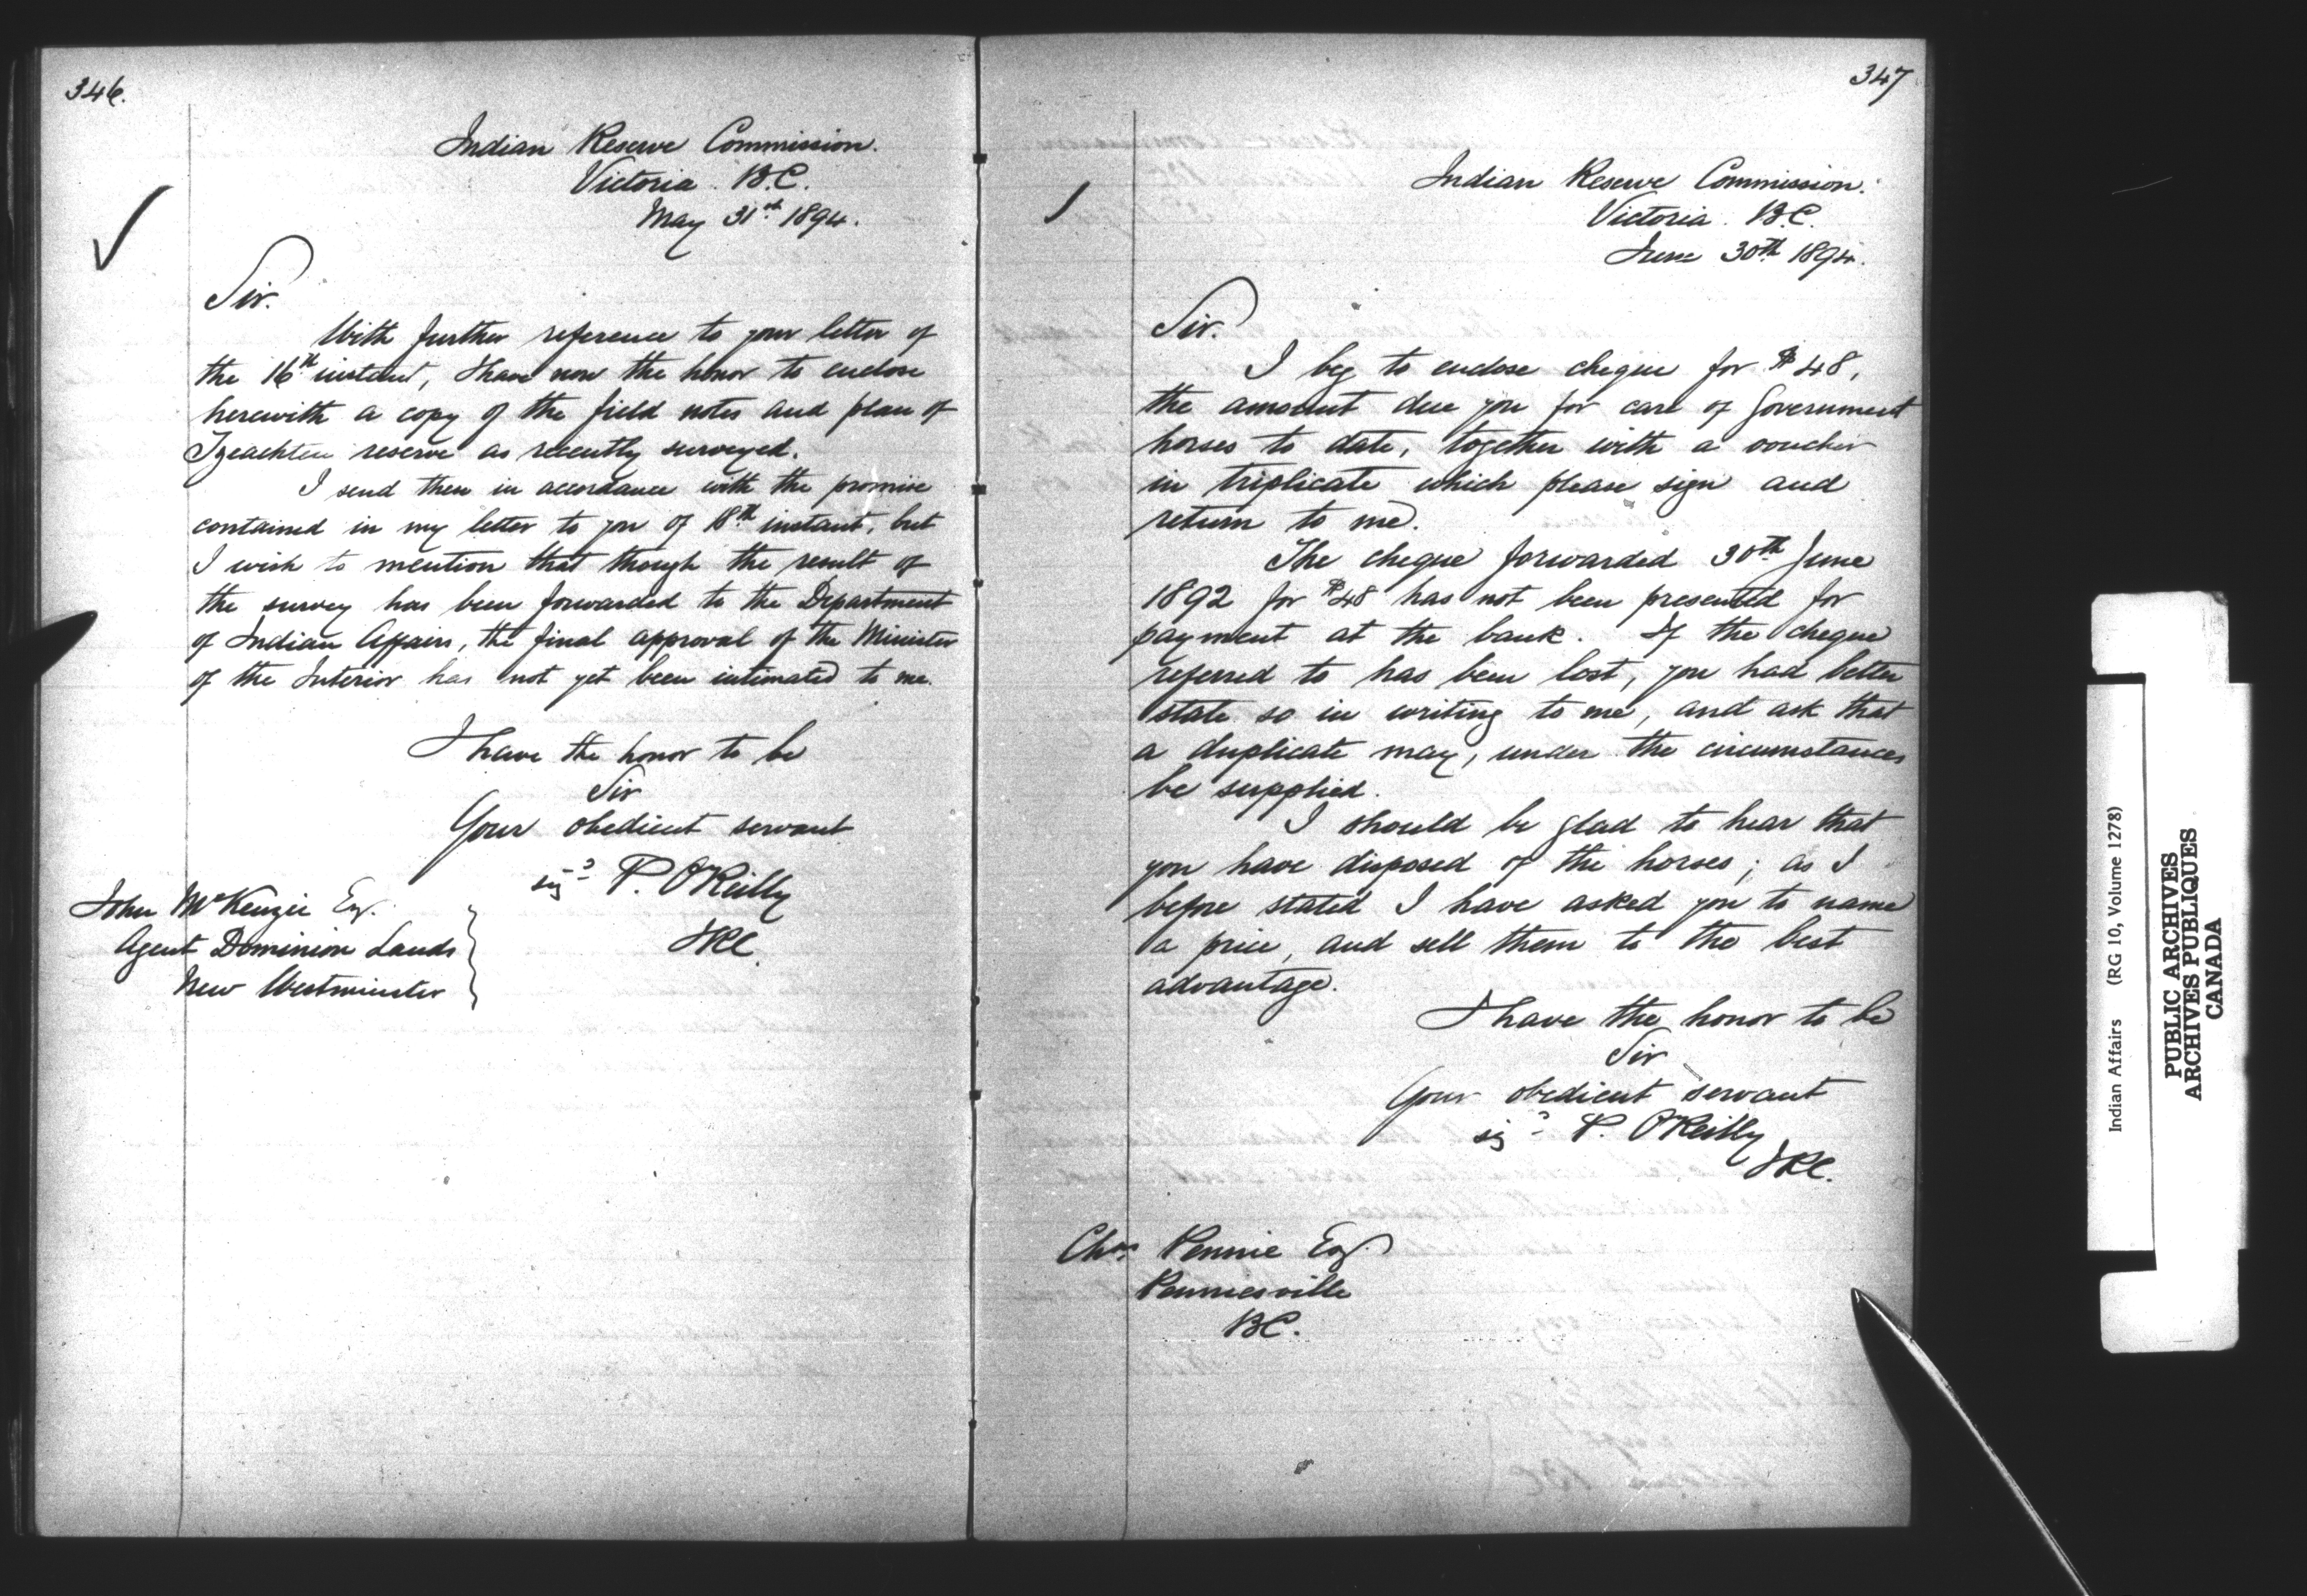 346.
Indian Reserve Commission.
Victoria. B.C.
May 31st 1894.
Sir.
With further reference to your letter of
the 16th instant, I have now the honor to enclose
herewith a copy of the field notes and plan of
Tzeachten reserve as recently surveyed.
I send them in accordance with the promise
contained in my letter to you of 18th instant, but
I wish to mention that though the result of
the survey has been forwarded to the Department
of Indian Affairs, the final approval of the Minister
of the Interior has not yet been intimated to me.
I have the honor to be
Sir
Your obedient servant
sigd P. O'Reilly
IRC.
John McKenzie Esq.
Agent Dominion Lands
New Westminster
347
Indian Reserve Commission.
Victoria. B.C.
June 30th 1894.
Sir.
I beg to enclose cheque for $48,
the amount due you for care of Government
horses to date, together with a voucher
in triplicate which please sign and
return to me.
The cheque forwarded 30th June
1892 for $48 has not been presented for
payment at the bank. If the cheque
referred to has been lost, you had better
state so in writing to me, and ask that
a duplicate may, under the circumstances
be supplied.
I should be glad to hear that
you have disposed of the horses; as I
before stated I have asked you to name
a price, and sell them to the best
advantage.
I have the honor to be
Sir
Your obedient servant
sigd P. O'Reilly
IRC.
Chas Pennie Esq.
Penniesville
BC.
Indian Affairs (RG 10, Volume 1278)
PUBLIC ARCHIVES
ARCHIVES PUBLIQUES
CANADA